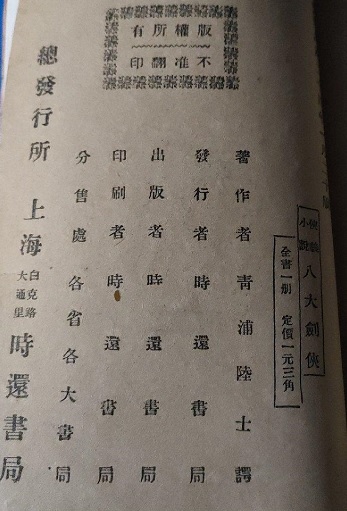 小說
八大劍俠
全書一册　定價一元三角
版權所有
不准翻印
著作者　青浦陸士諤
發行者　時還書局
出版者　時還書局
印刷者　時還書局
分售處　各省各大書局
總發行所　上海　白克路
大通里
時還書局